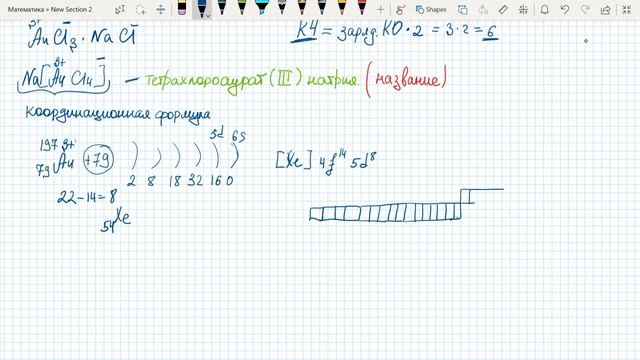 Математика » New Section 2
Shapes
3+
AuCl₃ · NaCl
КЧ = заряд. КО · 2 = 3 · 2 = 6
3+ –
Na[AuCl₄] – тетрахлороаурат (III) натрия. (название)
Координационная формула
5d 6s
¹⁹⁷₇₉Au³⁺ +79 ) ) ) ) ) )
2 8 18 32 16 0
[Xe] 4f¹⁴ 5d⁸
22 – 14 = 8
₅₄Xe